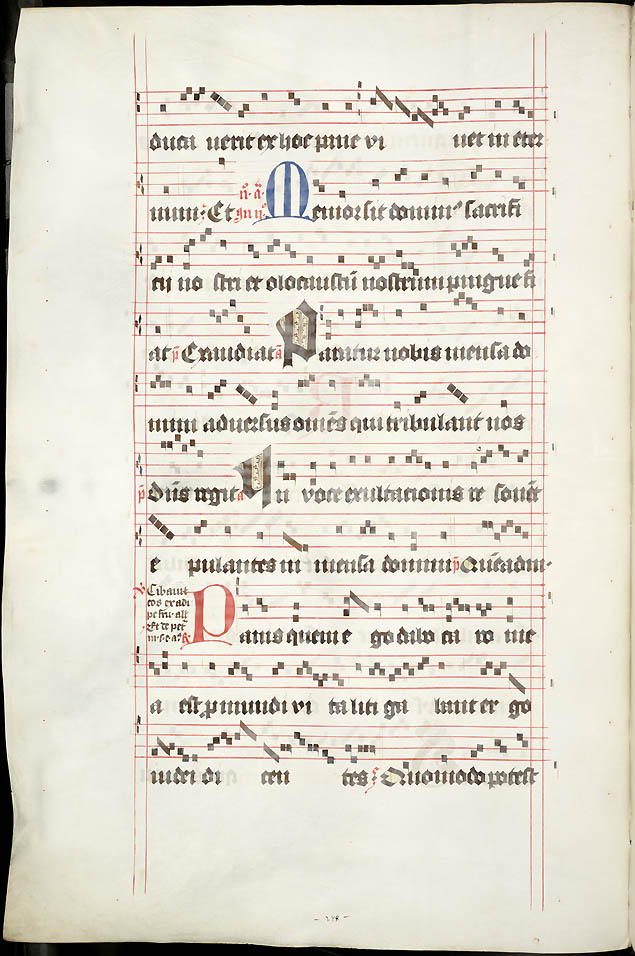 ducā verit ex hoc pane vi vet in eter
num Et Memor sit domin⁹ sacrifi
cii no stri et olocaustū nostrum pingue fi
at p̄ Exaudiat ā Paratur nobis mensa do
mini adversus omēs qui tribulant nos
p̄ Dn̄s regit a In voce exultacionis re sonēt
e pulantes in mensa domini p̄ Quēadm
Cibavit
eos ex adi
Panis quem e go dabo ca ro me
a est p mundi vi ta liti ga bant er go
iudei di cen tes Quomodo potest